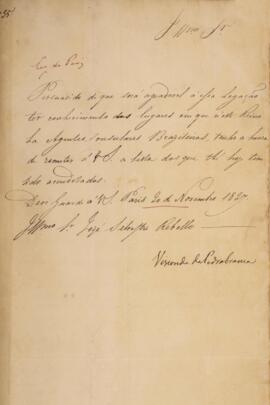 35
Illmo Sr
Persuadido de que será agradavel á essa Legação
ter conhecimento dos lugares em que neste Reino
ha Agentes Consulares Brazileiros, tenho a honra
de remeter a V.S. a lista dos que thé hoje tem
sido acreditados.
Deos Guarde a V.S. Paris 20 de Novembro 1827
Illmo Sr José Silvestre Rebello
Visconde de Pedra branca